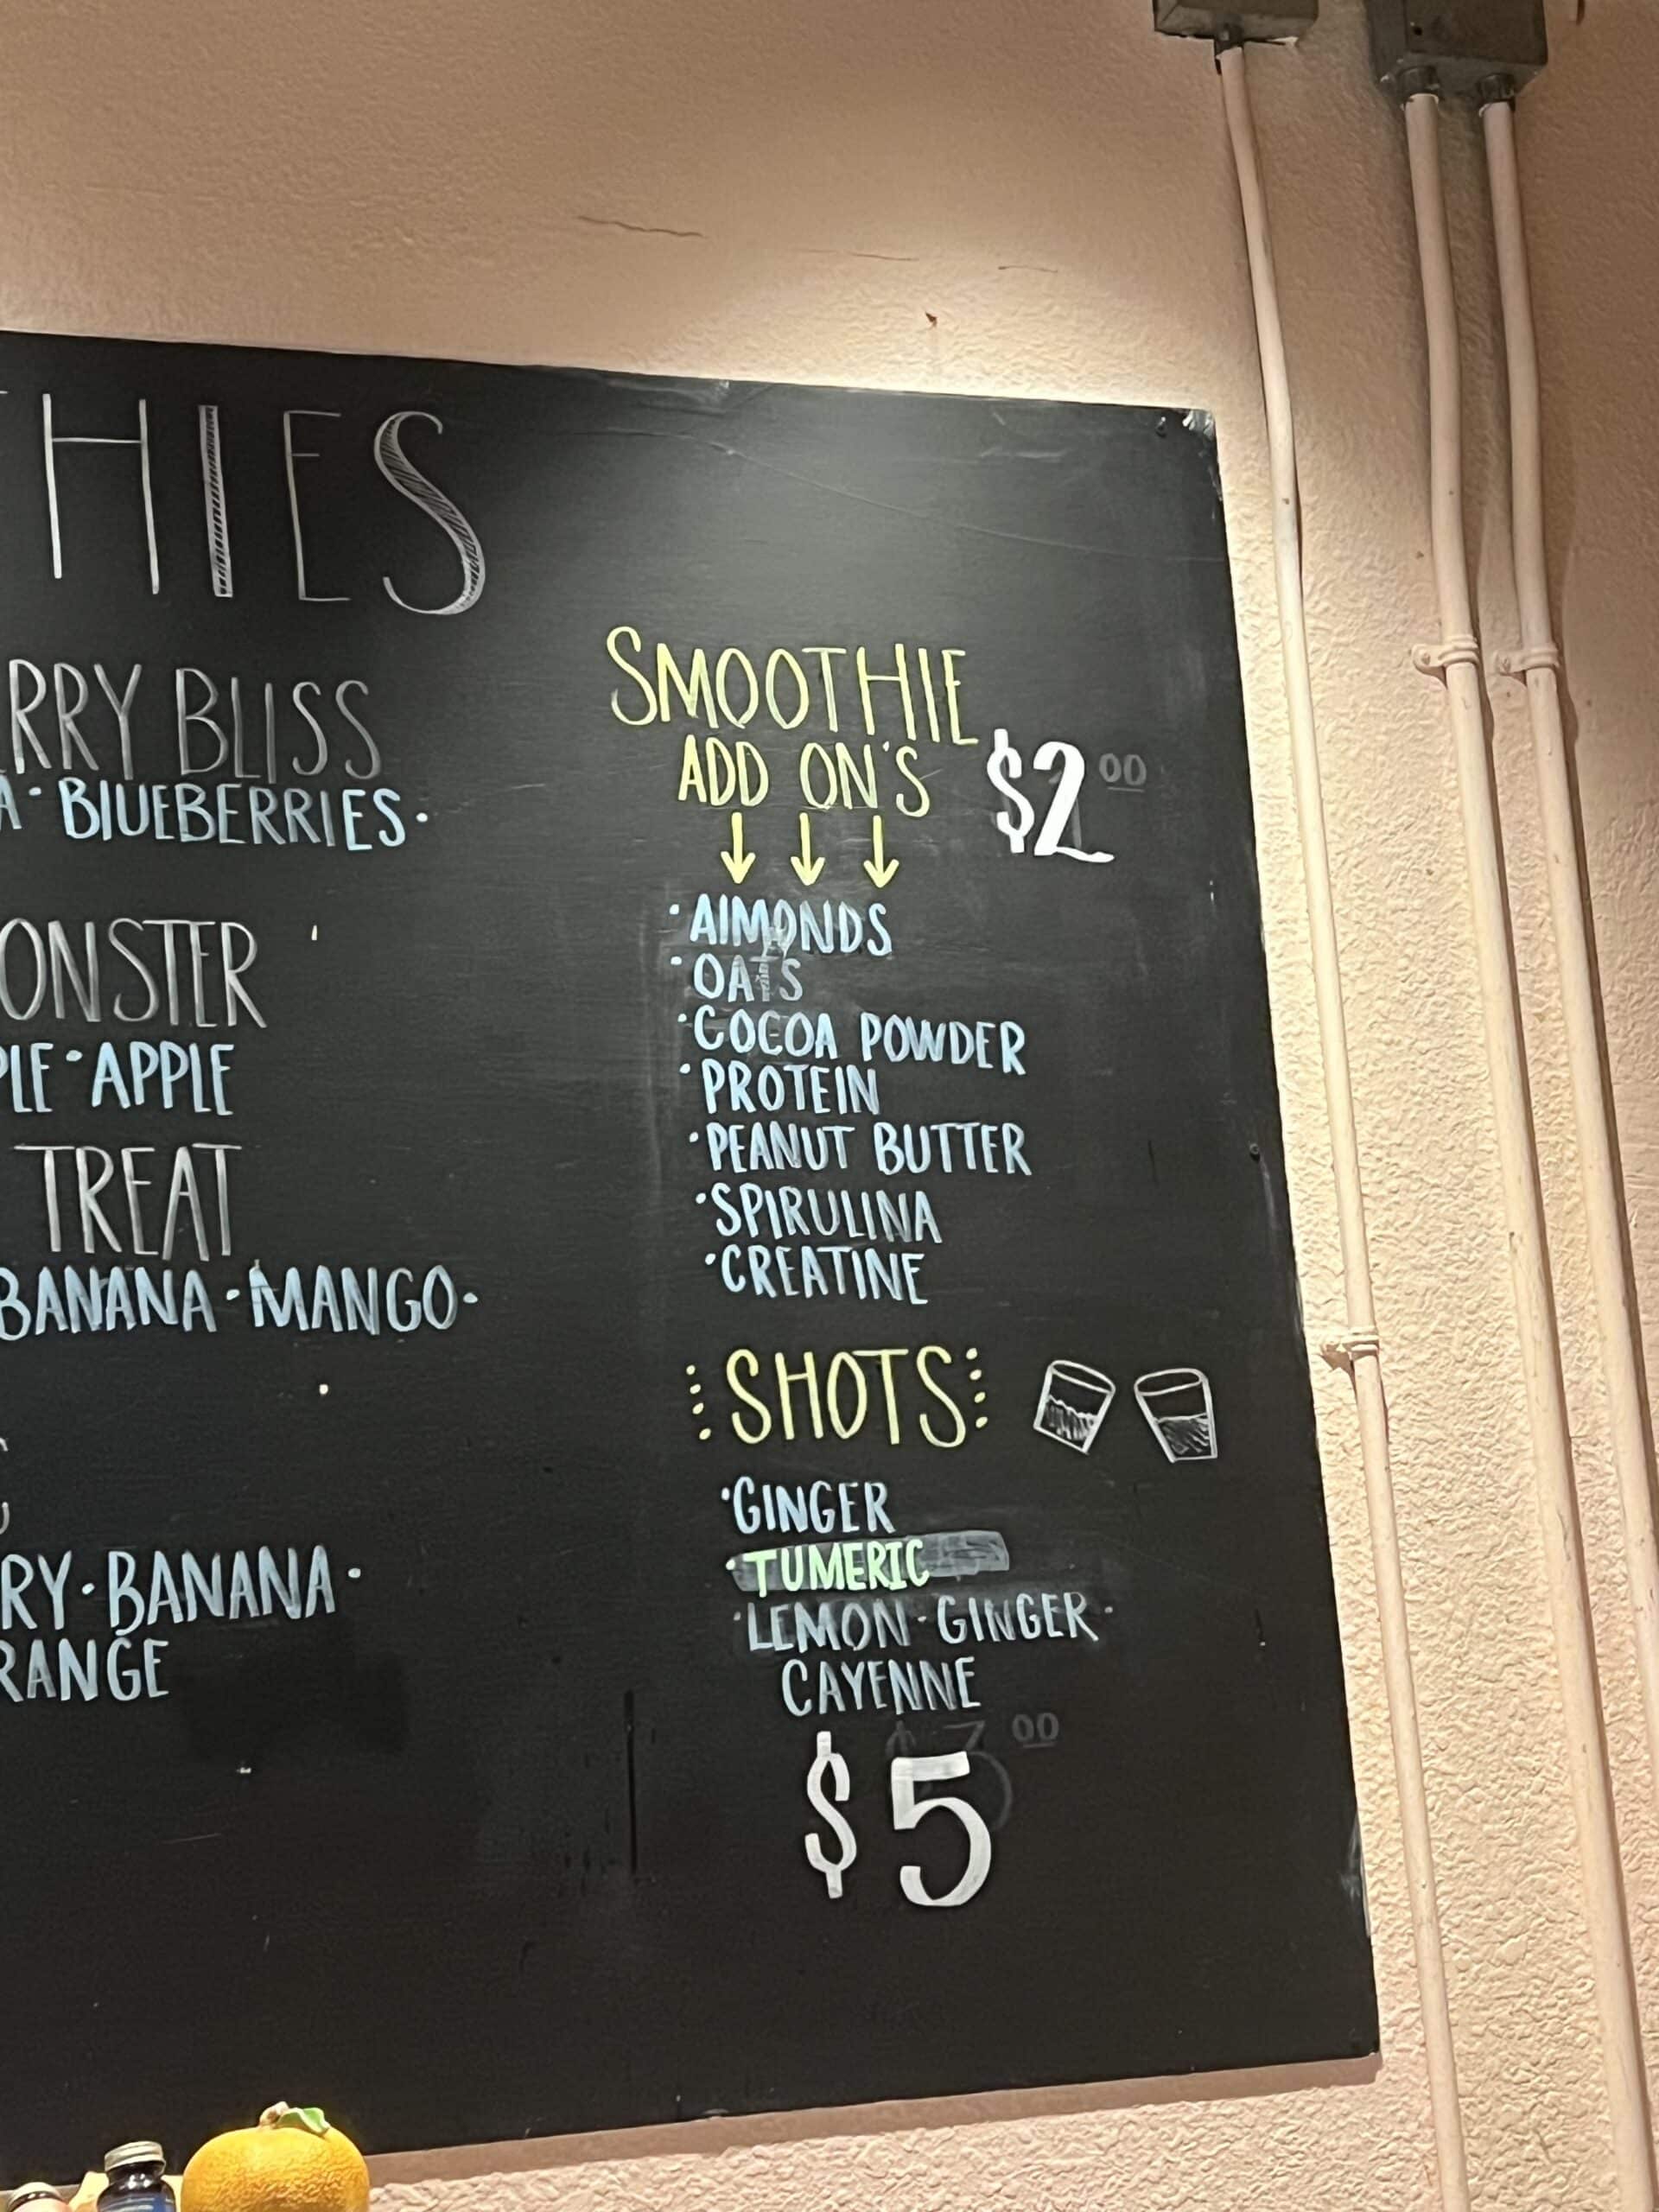 HIES
RRY BLISS
A · BLUEBERRIES ·
ONSTER
PLE · APPLE
TREAT
BANANA · MANGO ·
RY · BANANA ·
RANGE
SMOOTHIE
ADD ON'S $2 00
· ALMONDS
· OATS
· COCOA POWDER
· PROTEIN
· PEANUT BUTTER
· SPIRULINA
· CREATINE
SHOTS
· GINGER
· TUMERIC
· LEMON · GINGER ·
CAYENNE
$5